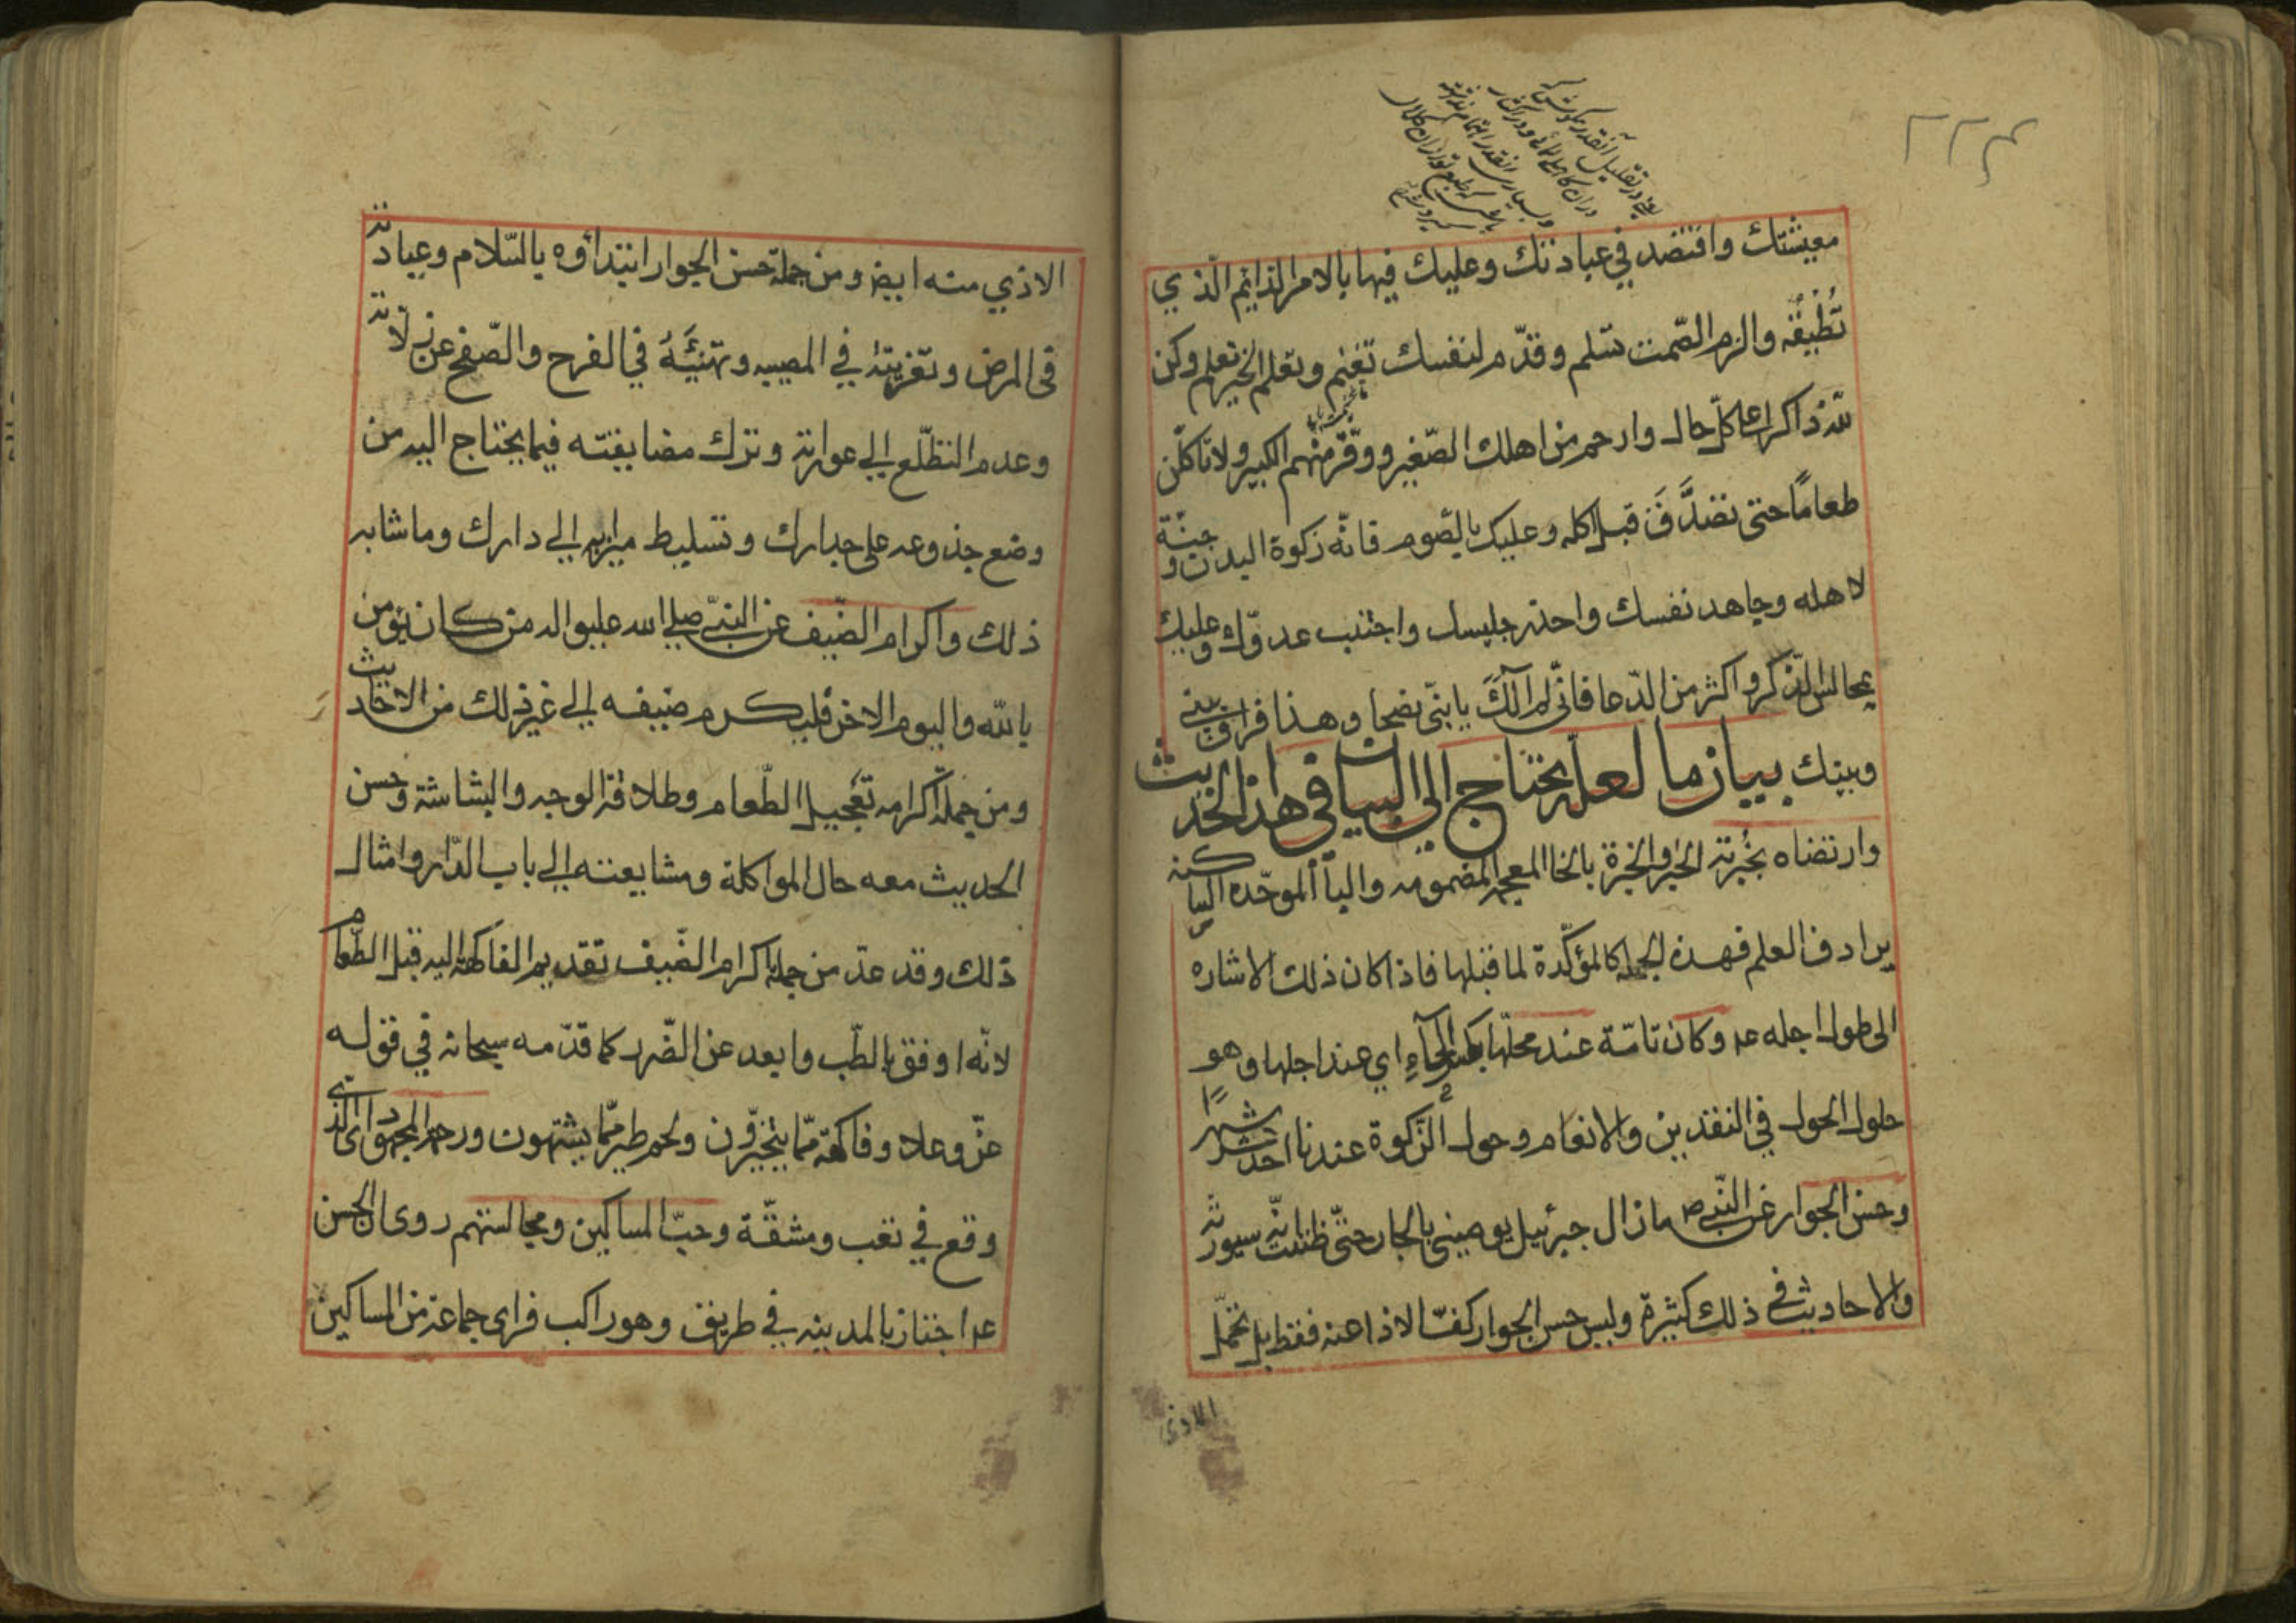 ۲۲۴
معيشتك واقتصد في عبادتك وعليك فيها بالامر الدايم الّذي
تُطيقُه والزم الصّمت تسلم وقدّم لنفسك تغنم وتعلم الخير تعلم وكن
للّه ذاكرا على كلّ حال وارحم من اهلك الصّغير ووقّر منهم الكبير ولا تاكلن
طعامًا حتى تصدَّقَ قبل اكله وعليك بالصّوم فانّه زكوة البدن وجنّة
لاهله وجاهد نفسك واحذر جليسك واجتنب عدوّك وعليك
بمجالس الذّكر واكثر من الدّعا فانّى لم آلُكَ يا بنّى نصحا وهذا فراق بينى
وبينك بيان ما لعله يحتاج الى البيان في هذا الحديث
وارتضاه بخُبرته الخبر والخبرة بالخا المعجمه المضمومه والبأ الموحّده الساكنه
يرادف العلم فهذه الجمله كالمؤكّدة لما قبلها فاذا كان ذلك الاشاره
الى طول اجله عم وكان تامّة عند محلّها بكسر الحآءِ اي عند اجلها وهو
حلول الحول في النقدين والانعام وحول الزّكوة عندنا احد عشر شهرًا
وحسن الجوار عن النّبي ص مازال جبرئيل يوصيني بالجار حتّى ظننت انّه سيورّثه
والاحاديث في ذلك كثيرة وليس حسن الجوار كفّ الاذا عنه فقط بل تحمّل
الاذي
الاذي منه ايض ومن جملة حسن الجوار ابتداؤه بالسّلام وعيادته
فى المرض وتعزيته في المصيبه وتهنيَّهُ في الفرح والصّفح عن زلّاته
وعدم التطلّع الي عوراته وترك مضايقته فيما يحتاج اليه من
وضع جذوعه على جدارك وتسليط ميزابه الي دارك وما شابه
ذلك واكرام الضّيف عن النبيّ صلي الله عليه واله من كان يؤمن
بالله واليوم الاخر فليكرم ضيفه الي غير ذلك من الاحاديث
ومن جملة اكرامه تعجيل الطّعام وطلاقة الوجه والبشاشة وحسن
الحديث معه حال المواكلة ومشايعته الي باب الدّار وامثال
ذلك وقد عدّ من جملة اكرام الضّيف تقديم الفاكهة اليه قبل الطّعام
لانّه اوفق بالطّب وابعد عن الضّرر كما قدّمه سبحانه في قوله
عزّ وعلا وفاكهة ممّا يتخيّرون ولحم طير ممّا يشتهون ورحم المجهود اى الّذى
وقع في تعب ومشقّة وحبّ المساكين ومجالستهم روى ان الحسن
عم اجتاز بالمدينه في طريق وهو راكب فراى جماعة من المساكين